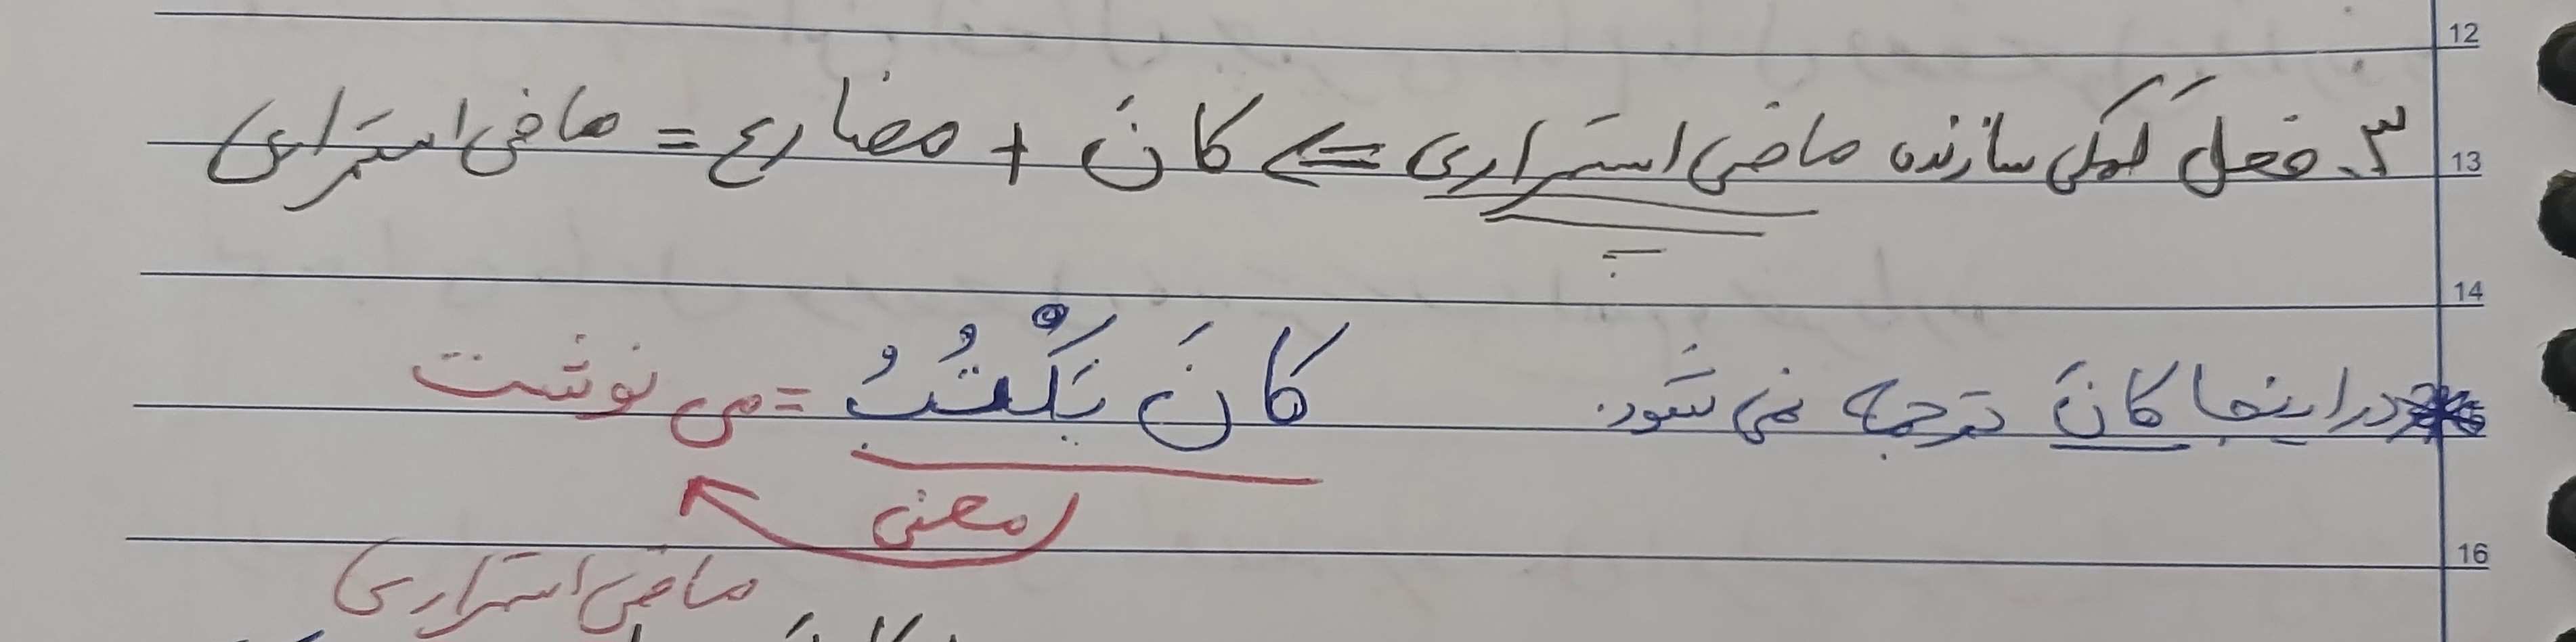 12
۳. فعل کمکی سازنده ماضی استمراری ⇐ کانَ + مضارع = ماضی استمراری
13
14
در اینجا کانَ ترجمه نمی شَود. کانَ یَکْتُبُ = می نوشت
معنی
16
ماضی استمراری